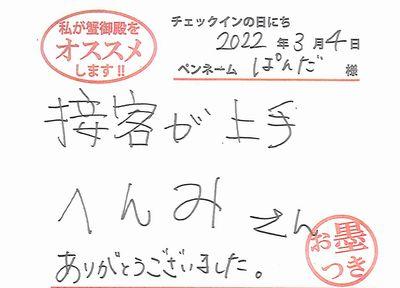 私が蟹御殿を
オススメ
します!!
チェックインの日にち
2022年3月4日
ペンネーム ぱんだ 様
接客が上手
へんみ さん
ありがとうございました。
お墨
つき